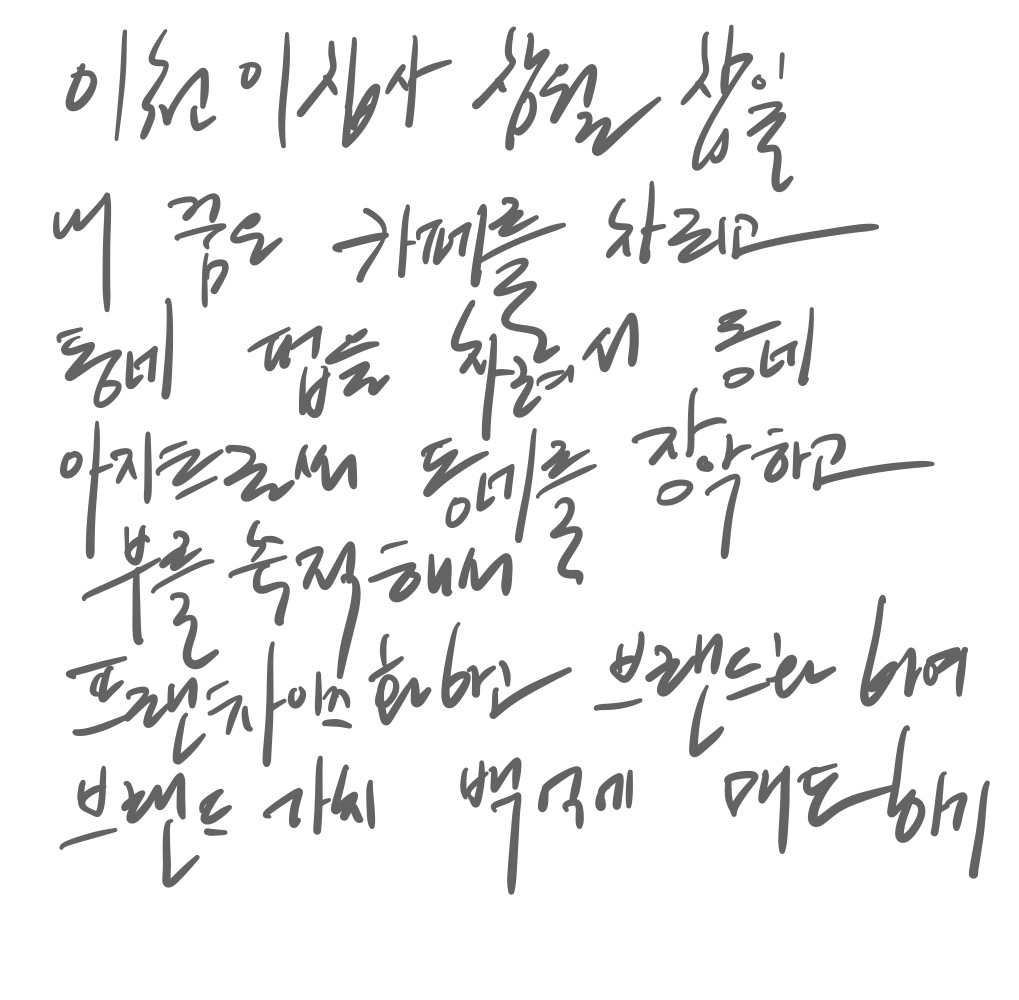 이천 이십사 창월 참일
내 꿈은 카페를 차리고
동네 펍을 차려서 동네
아지트로써 동네를 장악하고
부를 축적해서
프랜차이즈화하고 브랜드화 하여
브랜드 가씨 백억에 매도하기